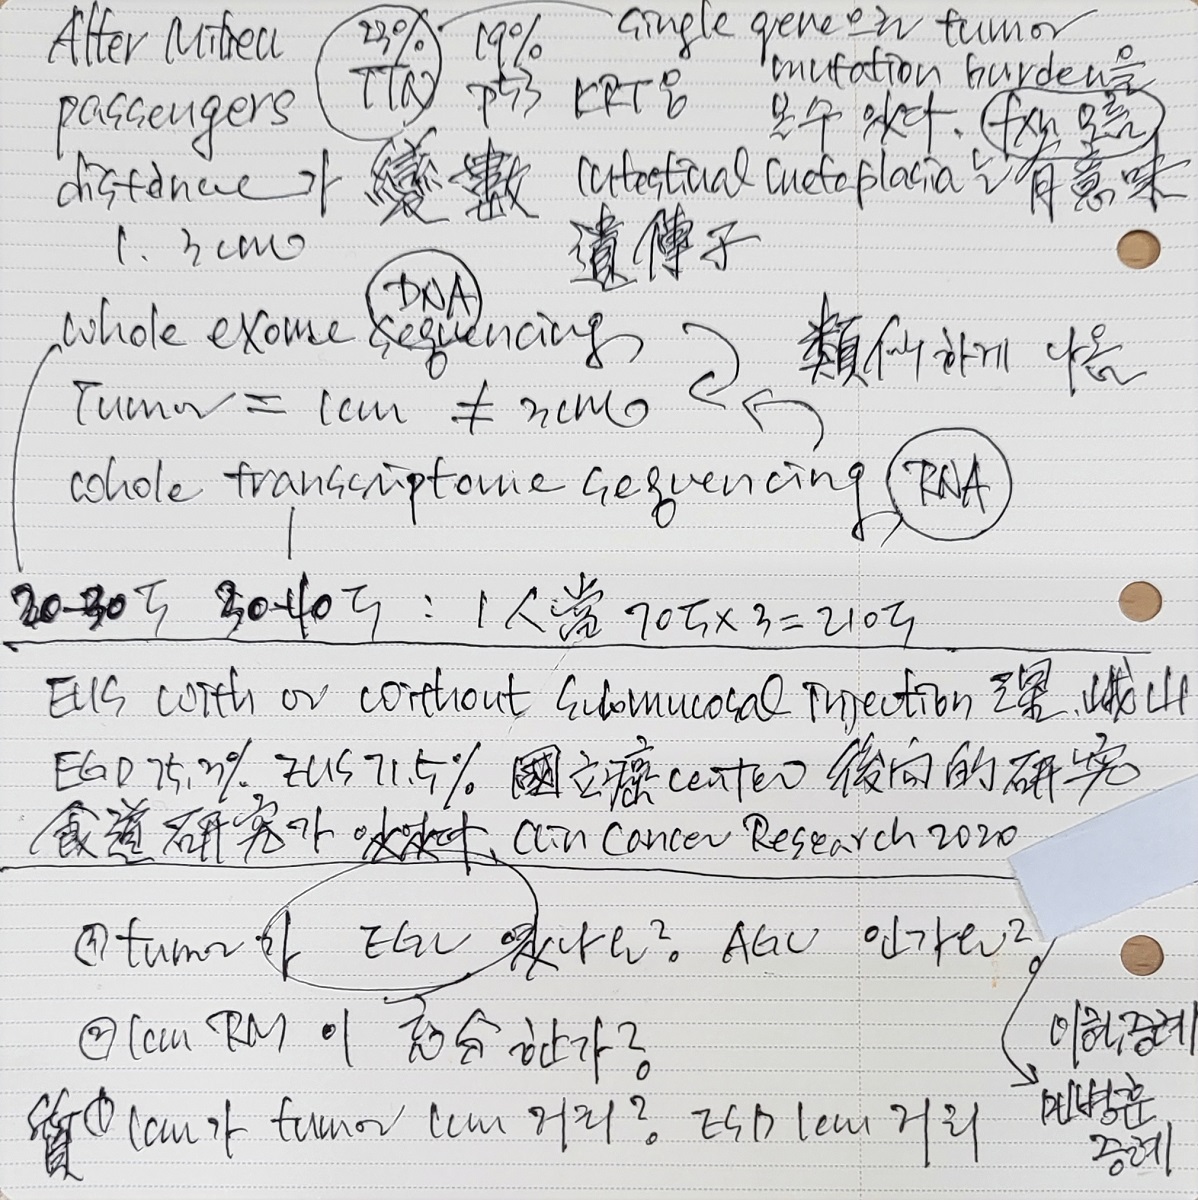 After 23% 19% single gene으로 tumor
passengers TTN p53 mutation burden을
볼수 있다. fxn 모름
distance가 變數 intestinal metaplasia는 有意味
1. 3cm 遺傳子
DNA
whole exome sequencing
類似하게 나옴
Tumor = 1cm ≠ 3cm
whole transcriptome sequencing RNA
20-30도 30-40도 : 1人當 70도 x 3 = 210도
EUS with or without submucosal injection
EGD EUS 71.5% 國立癌center 後向的 硏究
食道 硏究가 있었다. Clin Cancer Research 2020
① tumor가 EGC 였나요? AGC 인가요?
② 1cm RM 이 충분한가?
증례
質 ① 1cm가 tumor 1cm 거리? ESD 1cm 거리
민병훈
증례